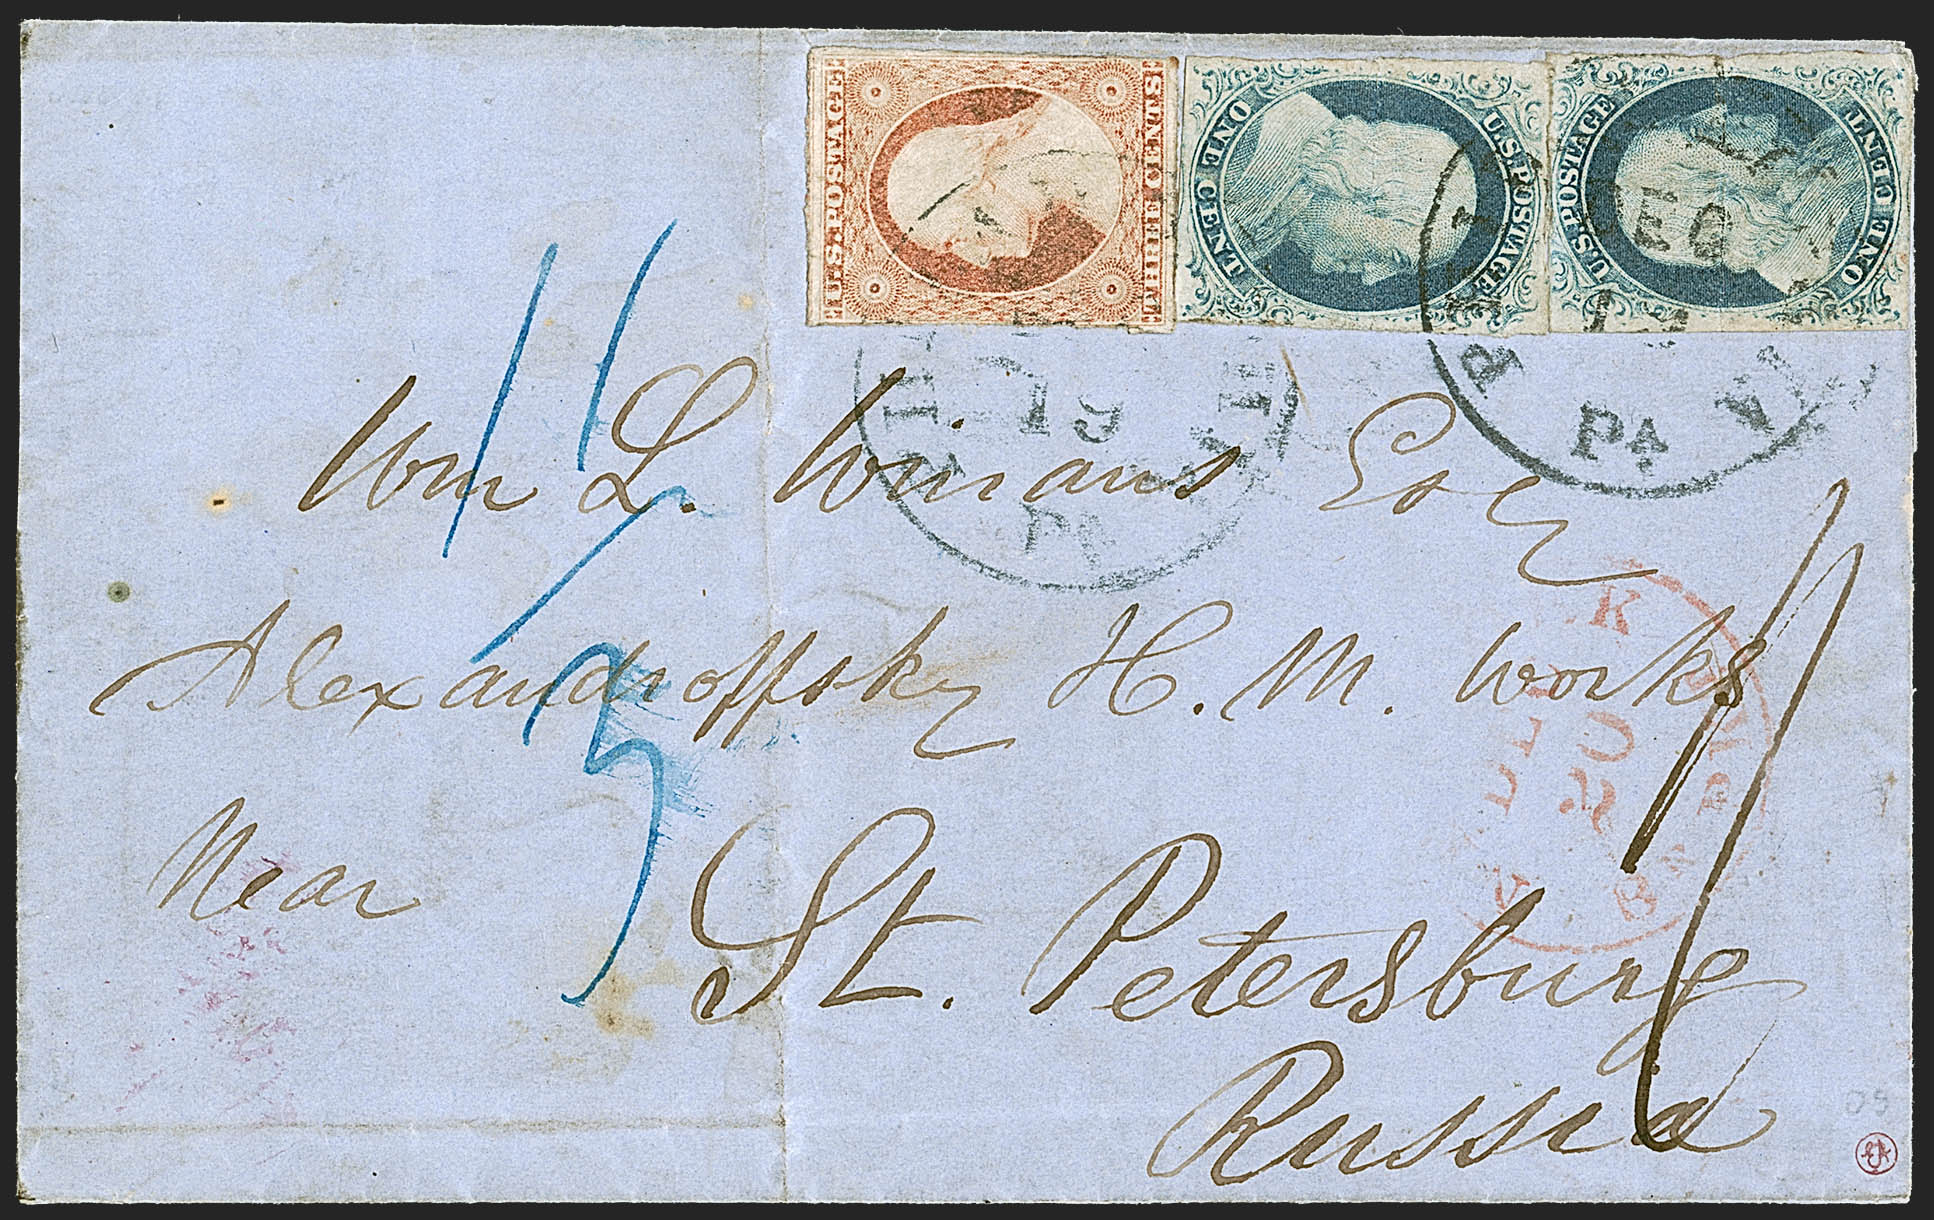 U.S. POSTAGE
THREE CENTS
U.S. POSTAGE
ONE CENT
U.S. POSTAGE
ONE CENT
19
PA
PA
Wm L. Winans Esq
Alexandroffsky H. M. Works
Near
St. Petersburg
Russia
3